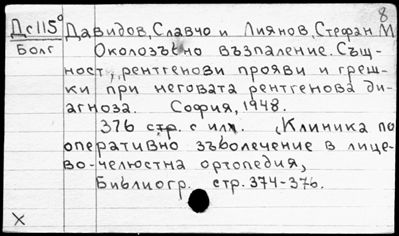 8
Дс115° Давидов, Славчо и Лиянов, Стефан М
Болг Околозъбно възпаление. Същ-
ност, рентгенови прояви и греш-
ки при неговата рентгенова ди-
агноза. София, 1948.
376 стр. с илл. (Клиника по
оперативно зъболечение в лице-
во-челюстна ортопедия,
Библиогр. стр. 374-376.
X